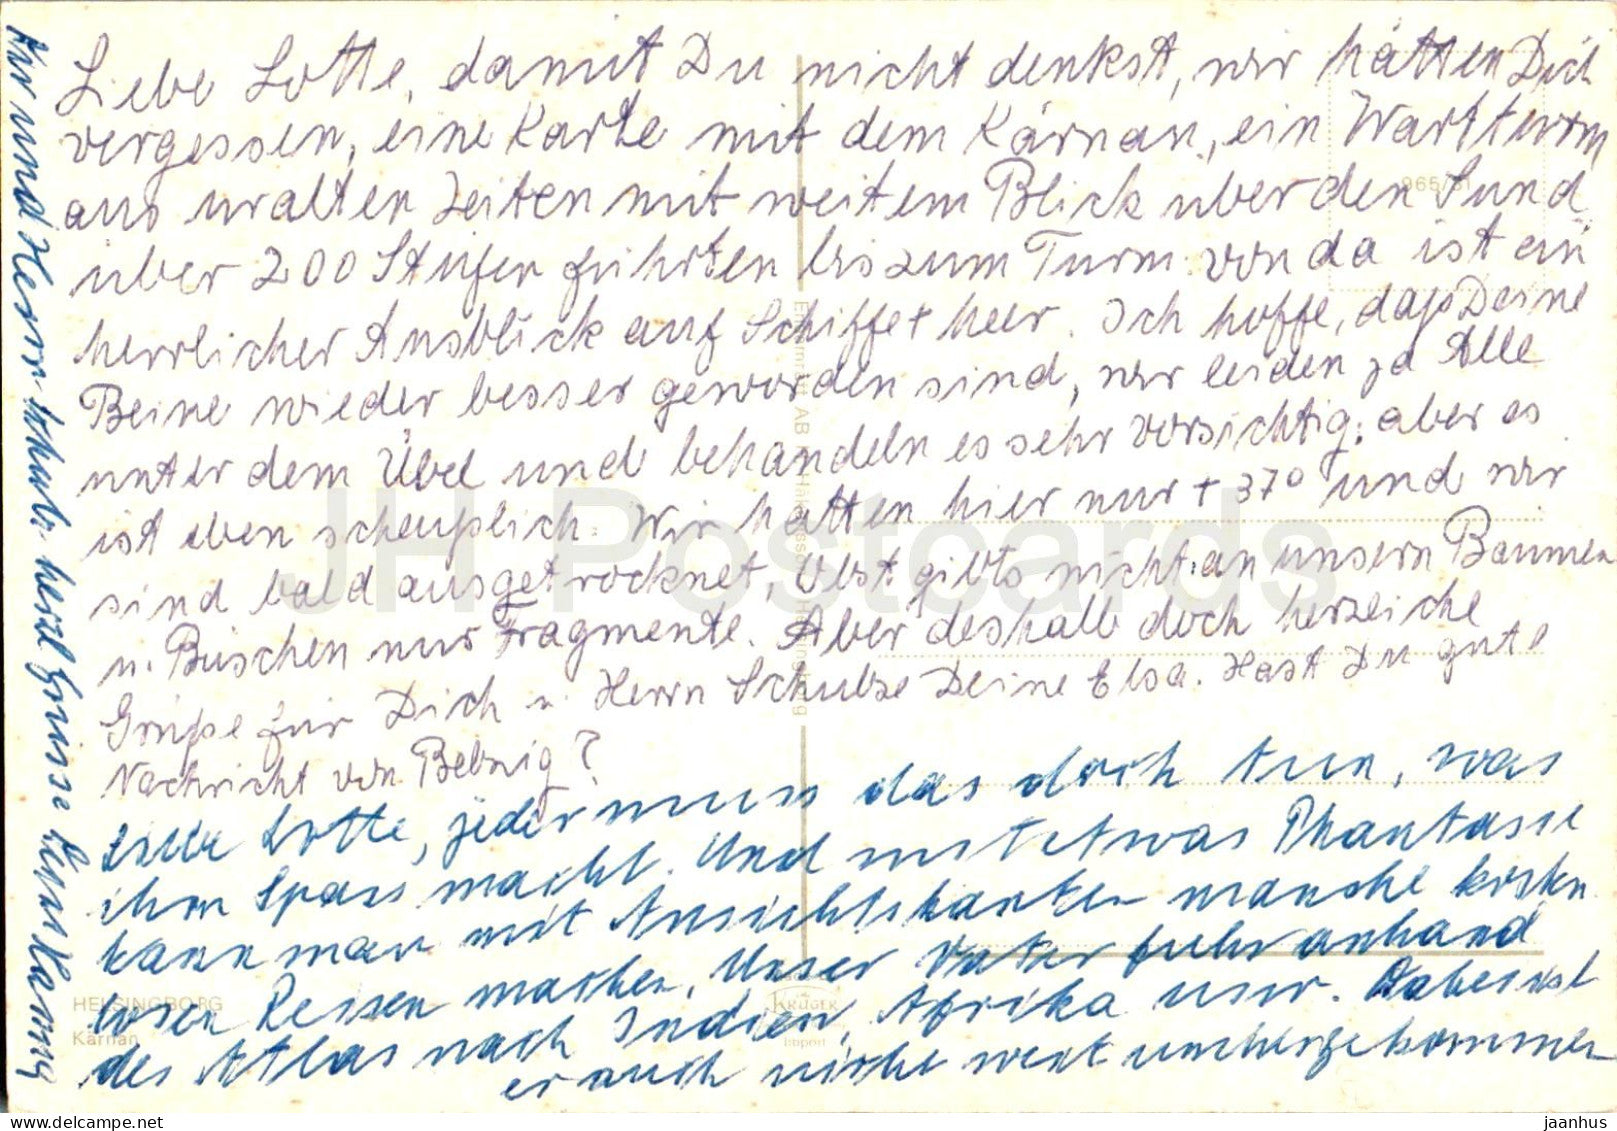 Liebe Lotte, damit Du nicht denkst, wir hätten Dich
vergessen, eine Karte mit dem Kärnan, ein Wartturm
aus uralten Zeiten mit weitem Blick über den Sund
über 200 Stufen führten bis zum Turm. von da ist ein
herrlicher Ausblick auf Schiffe + Meer. Ich hoffe, daß Deine
Beine wieder besser geworden sind, wir leiden ja Alle
unter dem Übel und behandeln es sehr vorsichtig, aber es
ist eben scheußlich. Wir hatten hier nur + 37° und wir
sind bald ausgetrocknet, Obst gibts nicht, an unsern Bäumen
u. Büschen nur Fragmente. Aber deshalb doch herzliche
Grüße für Dich u. Herrn Schulze Deine Elsa. Hast Du gute
Nachricht von Bebnig?
Liebe Lotte, jeder muss das doch tun, was
ihm Spass macht. Und mit etwas Phantasie
kann man mit Ansichtskarten manche kosten
losen Reisen machen. Unser Vater fuhr anhand
des Atlas nach Indien, Afrika usw. Dabei ist
er auch nicht weit umhergekommen
Dir und Herrn Schulz herzl Grüsse
HELSINGBORG
Kärnan
965/81
KRÜGER
Import
JH Postcards
delcampe.net
jaanhus